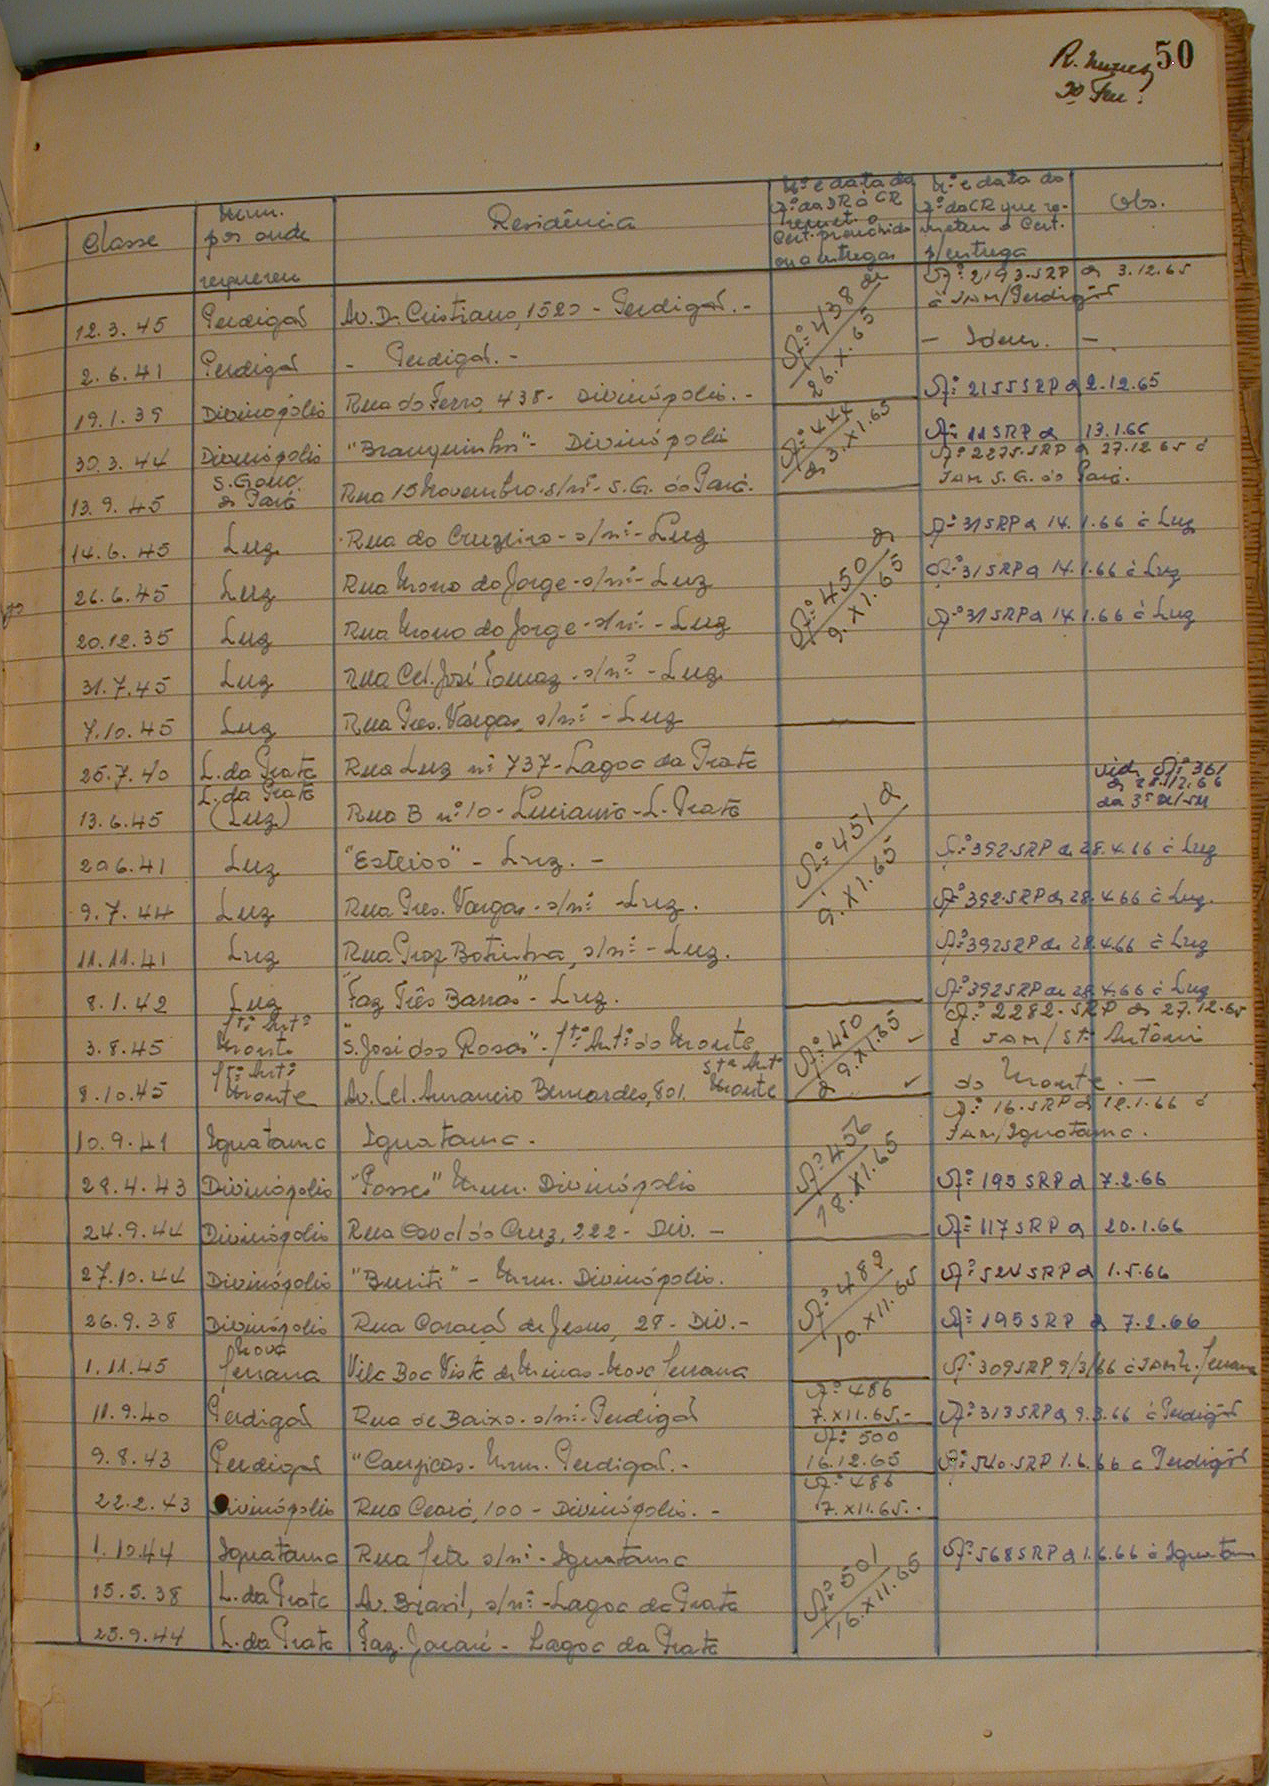 50
R. Nunes
2º Ten.
Classe
Mun. por onde requereu
Residência
Nº e data do Of. da DR à CR remet. o Cert. preenchido
Nº e data do Of. da CR que remeteu o Cert. p/entrega
Obs.
12.3.45 Perdigão Av. Dr. Cristiano, 1520 - Perdigão. - Of. nº 438 de 26.X.65 Of. nº 2193-SRP de 3.12.65 à JAM/Perdigão
2.6.41 Perdigão - Perdigão. - — Idem. —
19.1.39 Divinópolis Rua do Ferro, 438 - Divinópolis. - Of. nº 2155 SRP de 2.12.65
30.3.44 Divinópolis "Branquinhos" - Divinópolis Of. nº 444 de 3.XI.65 Of. nº 11 SRP de 13.1.66
13.9.45 S. Gonç. do Pará Rua 15 Novembro - s/nº - S. G. do Pará. Of. nº 2275-SRP de 27.12.65 à JAM S. G. do Pará.
14.6.45 Luz Rua do Cruzeiro - s/nº - Luz Of. nº 450 de 9.XI.65 Of. nº 31 SRP de 14.1.66 à Luz
26.6.45 Luz Rua Morro do Jorge - s/nº - Luz Of. nº 31 SRP de 14.1.66 à Luz
20.12.35 Luz Rua Morro do Jorge - s/nº - Luz Of. nº 31 SRP de 14.1.66 à Luz
31.7.45 Luz Rua Cel. José Tomaz - s/nº - Luz
7.10.45 Luz Rua Pres. Vargas, s/nº - Luz
25.7.40 L. da Prata Rua Luz nº 737 - Lagoa da Prata vid. Of. nº 361 de 28.12.66 da 3ª
13.6.45 L. da Prata (Luz) Rua B nº 10 - Luciania - L. Prata Of. nº 451 de 9.XI.65
20.6.41 Luz "Esteios" - Luz. - Of. nº 392-SRP de 28.4.66 à Luz
9.7.44 Luz Rua Pres. Vargas - s/nº - Luz. Of. nº 392-SRP de 28.4.66 à Luz.
11.11.41 Luz Rua Prof. Botinha, s/nº - Luz. Of. nº 392 SRP de 28.4.66 à Luz
8.1.42 Luz "Faz Três Barras" - Luz. Of. nº 392 SRP de 28.4.66 à Luz
3.8.45 Stº Antº Monte "S. José dos Rosas" - Stº Antº do Monte Of. nº 450 de 9.XI.65 Of. nº 2282-SRP de 27.12.65 à JAM/St. Antônio
8.10.45 Stº Antº Monte Av. Cel. Amancio Bernardes, 801. Stº Antº Monte do Monte. —
10.9.41 Iguatama Iguatama. Of. nº 456 18.XI.65 Of. nº 16-SRP de 12.1.66 à JAM/Iguatama.
28.4.43 Divinópolis "Posses" Mun. Divinópolis Of. nº 195 SRP de 7.2.66
24.9.44 Divinópolis Rua Osvaldo Cruz, 222 - Div. - Of. nº 117 SRP de 20.1.66
27.10.44 Divinópolis "Buriti" - Mun. Divinópolis. Of. nº 489 10.XII.65 Of. nº 524 SRP de 1.5.66
26.9.38 Divinópolis Rua Coração de Jesus, 28 - Div. - Of. nº 195 SRP de 7.2.66
1.11.45 Nova Serrana Vila Boa Vista de Minas - Nova Serrana Of. nº 309 SRP 9/3/66 à JAM N. Serrana
11.9.40 Perdigão Rua de Baixo - s/nº - Perdigão Of. nº 486 7.XII.65.- Of. nº 313 SRP de 9.3.66 à Perdigão
9.8.43 Perdigão "Canjicas - Mun. Perdigão. - Of. nº 500 16.12.65 Of. nº 540-SRP 1.6.66 à Perdigão
22.2.43 Divinópolis Rua Ceará, 100 - Divinópolis. - Of. nº 486 7.XII.65.-
1.10.44 Iguatama Rua Sete s/nº - Iguatama Of. nº 501 16.XII.65 Of. nº 568 SRP de 1.6.66 à Iguatama
15.5.38 L. da Prata Av. Brasil, s/nº - Lagoa da Prata
25.9.44 L. da Prata Faz. Jacaré - Lagoa da Prata